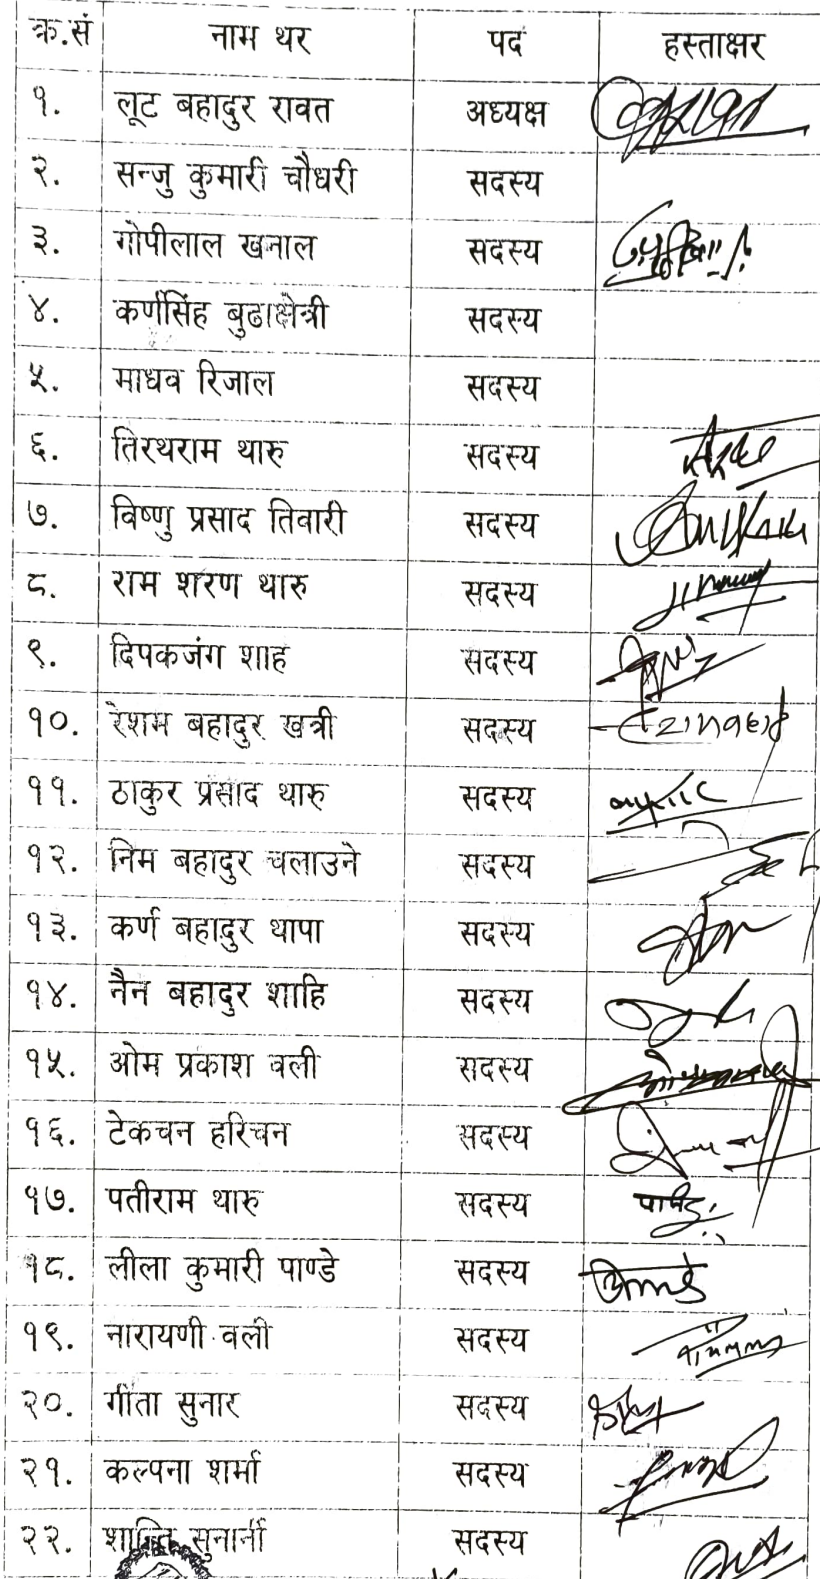 क्र.सं नाम थर पद हस्ताक्षर
१. लूट बहादुर रावत अध्यक्ष
२. सन्जु कुमारी चौधरी सदस्य
३. गोपीलाल खनाल सदस्य
४. कर्णसिंह बुढाक्षेत्री सदस्य
५. माधव रिजाल सदस्य
६. तिरथराम थारु सदस्य
७. विष्णु प्रसाद तिवारी सदस्य
८. राम शरण थारु सदस्य
९. दिपकजंग शाह सदस्य
१०. रेशम बहादुर खत्री सदस्य
११. ठाकुर प्रसाद थारु सदस्य
१२. निम बहादुर चलाउने सदस्य
१३. कर्ण बहादुर थापा सदस्य
१४. नैन बहादुर शाहि सदस्य
१५. ओम प्रकाश वली सदस्य
१६. टेकचन हरिचन सदस्य
१७. पतीराम थारु सदस्य
१८. लीला कुमारी पाण्डे सदस्य
१९. नारायणी वली सदस्य
२०. गीता सुनार सदस्य
२१. कल्पना शर्मा सदस्य
२२. शान्ति सुनार्नी सदस्य